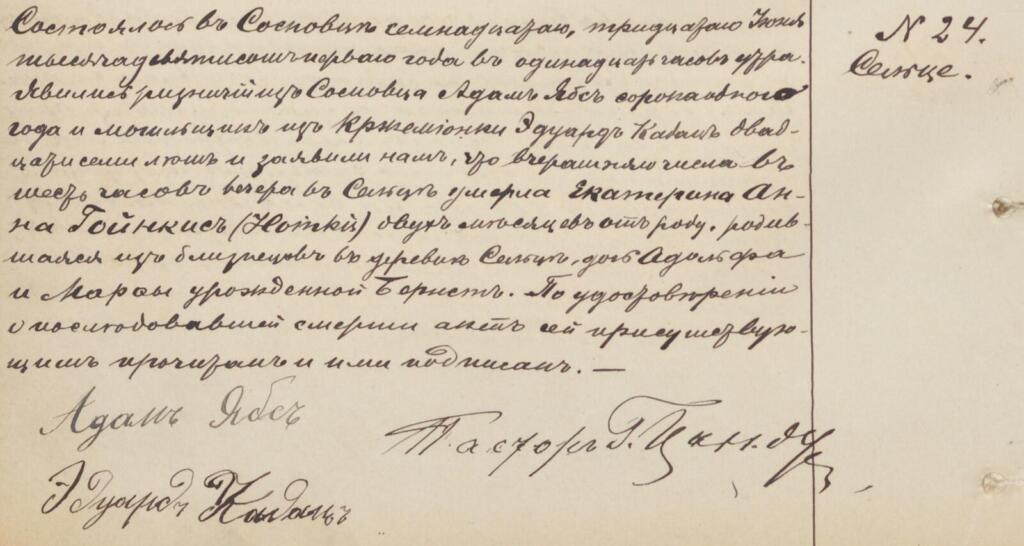 Состоялось въ Сосновцѣ семнадцатаго, тридцатаго Іюня
тысяча девятисотъ перваго года въ одинадцать часовъ утра.
Явились ризничій изъ Сосновца Адамъ Ябсъ сорока одного
года и могильщикъ изъ Кржеміонки Эдуардъ Кабацъ двад-
цати семи лѣтъ и заявили намъ, что вчерашняго числа въ
шесть часовъ вечера въ Сельцѣ умерла Екатерина Ан-
на Гойнкисъ (Hönkiß) двухъ мѣсяцевъ отъ роду, родив-
шаяся изъ близнецовъ въ деревнѣ Сельцѣ, дочь Адольфа
и Марѳы урожденной Бернстъ. По удостовѣреніи
о послѣдовавшей смерти актъ сей присутствую-
щимъ прочитанъ и ими подписанъ. —
Адамъ Ябсъ
Пасторъ Г.
Эдуардъ Кабацъ
N 24.
Сельце.